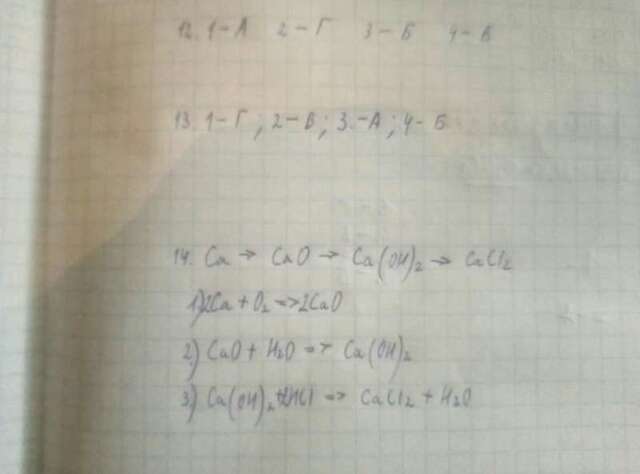 12. 1-А 2-Г 3-Б 4-В
13. 1-Г; 2-В; 3.-А; 4-Б
14. Ca → CaO → Ca(OH)₂ → CaCl₂
1) 2Ca + O₂ => 2CaO
2) CaO + H₂O => Ca(OH)₂
3) Ca(OH)₂ + 2HCl => CaCl₂ + H₂O